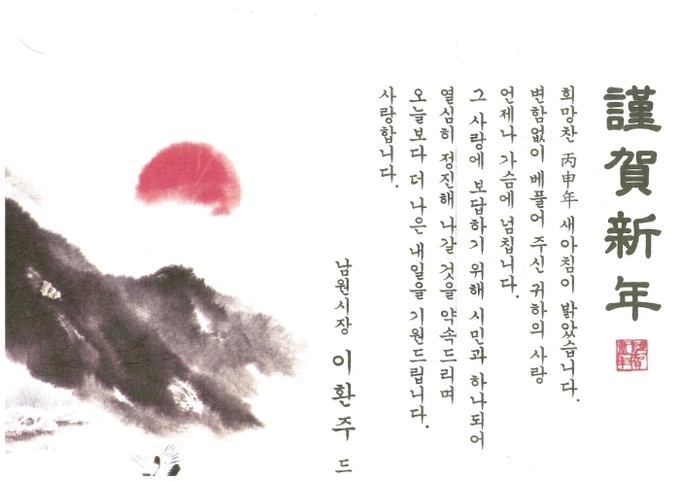 謹賀新年
희망찬 丙申年 새아침이 밝았습니다.
변함없이 베풀어 주신 귀하의 사랑
언제나 가슴에 넘칩니다.
그 사랑에 보답하기 위해 시민과 하나되어
열심히 정진해 나갈 것을 약속드리며
오늘보다 더 나은 내일을 기원드립니다.
사랑합니다.
남원시장 이환주 드